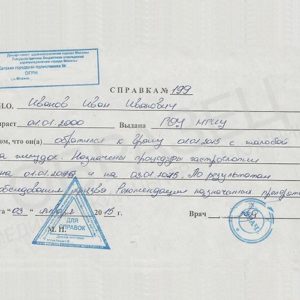 Департамент здравоохранения города Москвы
Государственное бюджетное учреждение
здравоохранения города Москвы
ОГРН
г. Москва
СПРАВКА № 199
И.О. Иванов Иван Иванович
зраст 01.01.2000 Выдана РОУ
ом, что он(а) обратился к врачу 01.01.2015 с жалобой
на желудок. Назначены процедуры гастроскопии
на 01.01.2015 и на 03.01.2015. По результатам
обследования Рекомендации назначения
ата "03" января 2015 г. Врач
М. П.
ДЛЯ
СПРАВОК